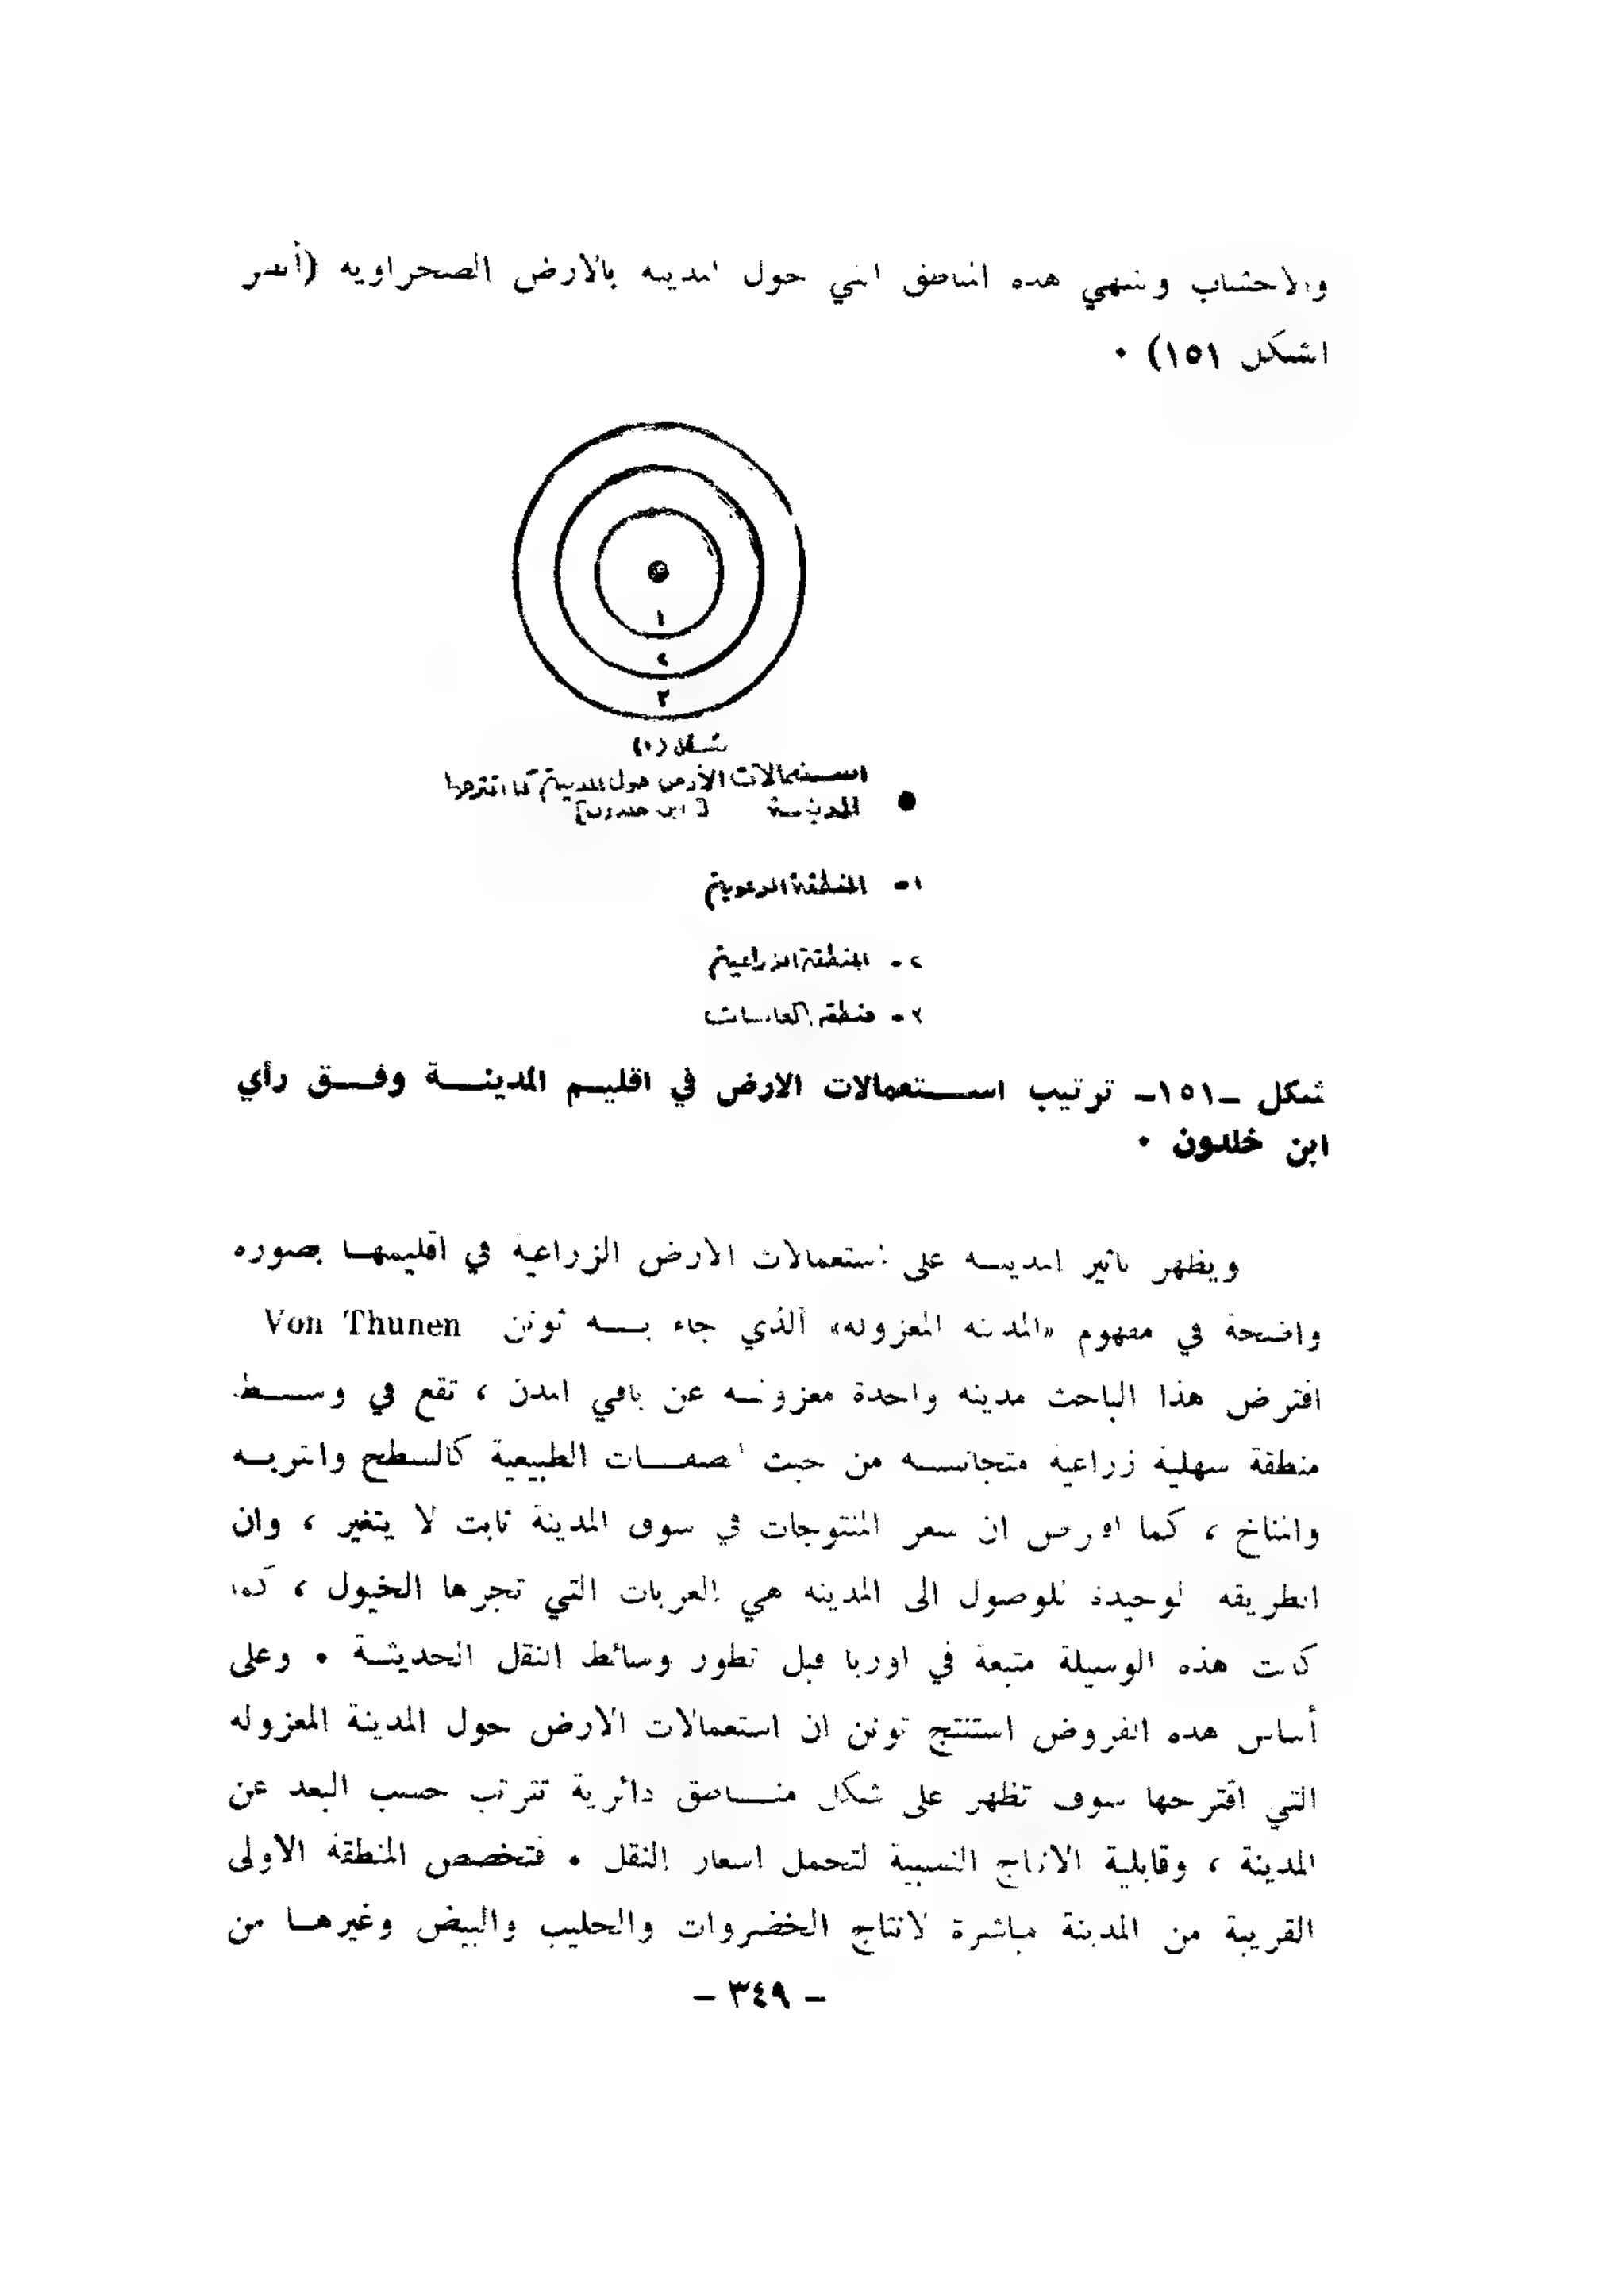 والاخشاب وتنتهي هذه المناطق التي حول المدينه بالارض الصحراويه (أنظر
الشكل ١٥١) ٠
١
٢
٣
شكل (١)
استعمالات الأرض حول المدينة كما اقترحها
[ابن خلدون]
● المدينة
١- المنطقة الرعوية
٢- المنطقة الزراعية
٣- منطقة الغابات
شكل ـ١٥١ـ ترتيب استعمالات الارض في اقليم المدينة وفق رأي
ابن خلدون ٠
ويظهر تأثير المدينه على استعمالات الارض الزراعية في اقليمها بصوره
واضحة في مفهوم «المدينه المعزوله» الذي جاء به ثونن Von Thunen
افترض هذا الباحث مدينه واحدة معزولـه عن باقي المدن ، تقع في وسط
منطقة سهلية زراعية متجانسه من حيث الصفات الطبيعية كالسطح والتربه
والمناخ ، كما افترض ان سعر المنتوجات في سوق المدينة ثابت لا يتغير ، وان
الطريقه الوحيدة للوصول الى المدينه هي العربات التي تجرها الخيول ، كما
كانت هذه الوسيلة متبعة في اوربا قبل تطور وسائط النقل الحديثة ٠ وعلى
أساس هذه الفروض استنتج ثونن ان استعمالات الارض حول المدينة المعزوله
التي اقترحها سوف تظهر على شكل مناطق دائرية تترتب حسب البعد عن
المدينة ، وقابلية الانتاج النسبية لتحمل اسعار النقل ٠ فتخصص المنطقة الاولى
القريبة من المدينة مباشرة لانتاج الخضروات والحليب والبيض وغيرها من
ـ ٣٤٩ ـ